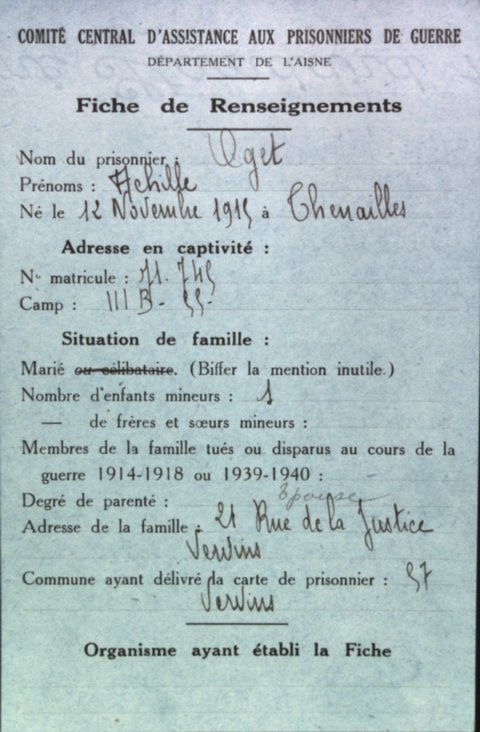 COMITÉ CENTRAL D'ASSISTANCE AUX PRISONNIERS DE GUERRE
DÉPARTEMENT DE L'AISNE
Fiche de Renseignements
Nom du prisonnier : Oget
Prénoms : Achille
Né le 12 Novembre 1915 à Thenailles
Adresse en captivité :
N° matricule : 71.745
Camp : III B - 55-
Situation de famille :
Marié ou célibataire. (Biffer la mention inutile.)
Nombre d'enfants mineurs : 1
— de frères et sœurs mineurs :
Membres de la famille tués ou disparus au cours de la
guerre 1914-1918 ou 1939-1940 :
Degré de parenté : épouse
Adresse de la famille : 21 Rue de la Justice
Vervins
Commune ayant délivré la carte de prisonnier : 57
Vervins
Organisme ayant établi la Fiche